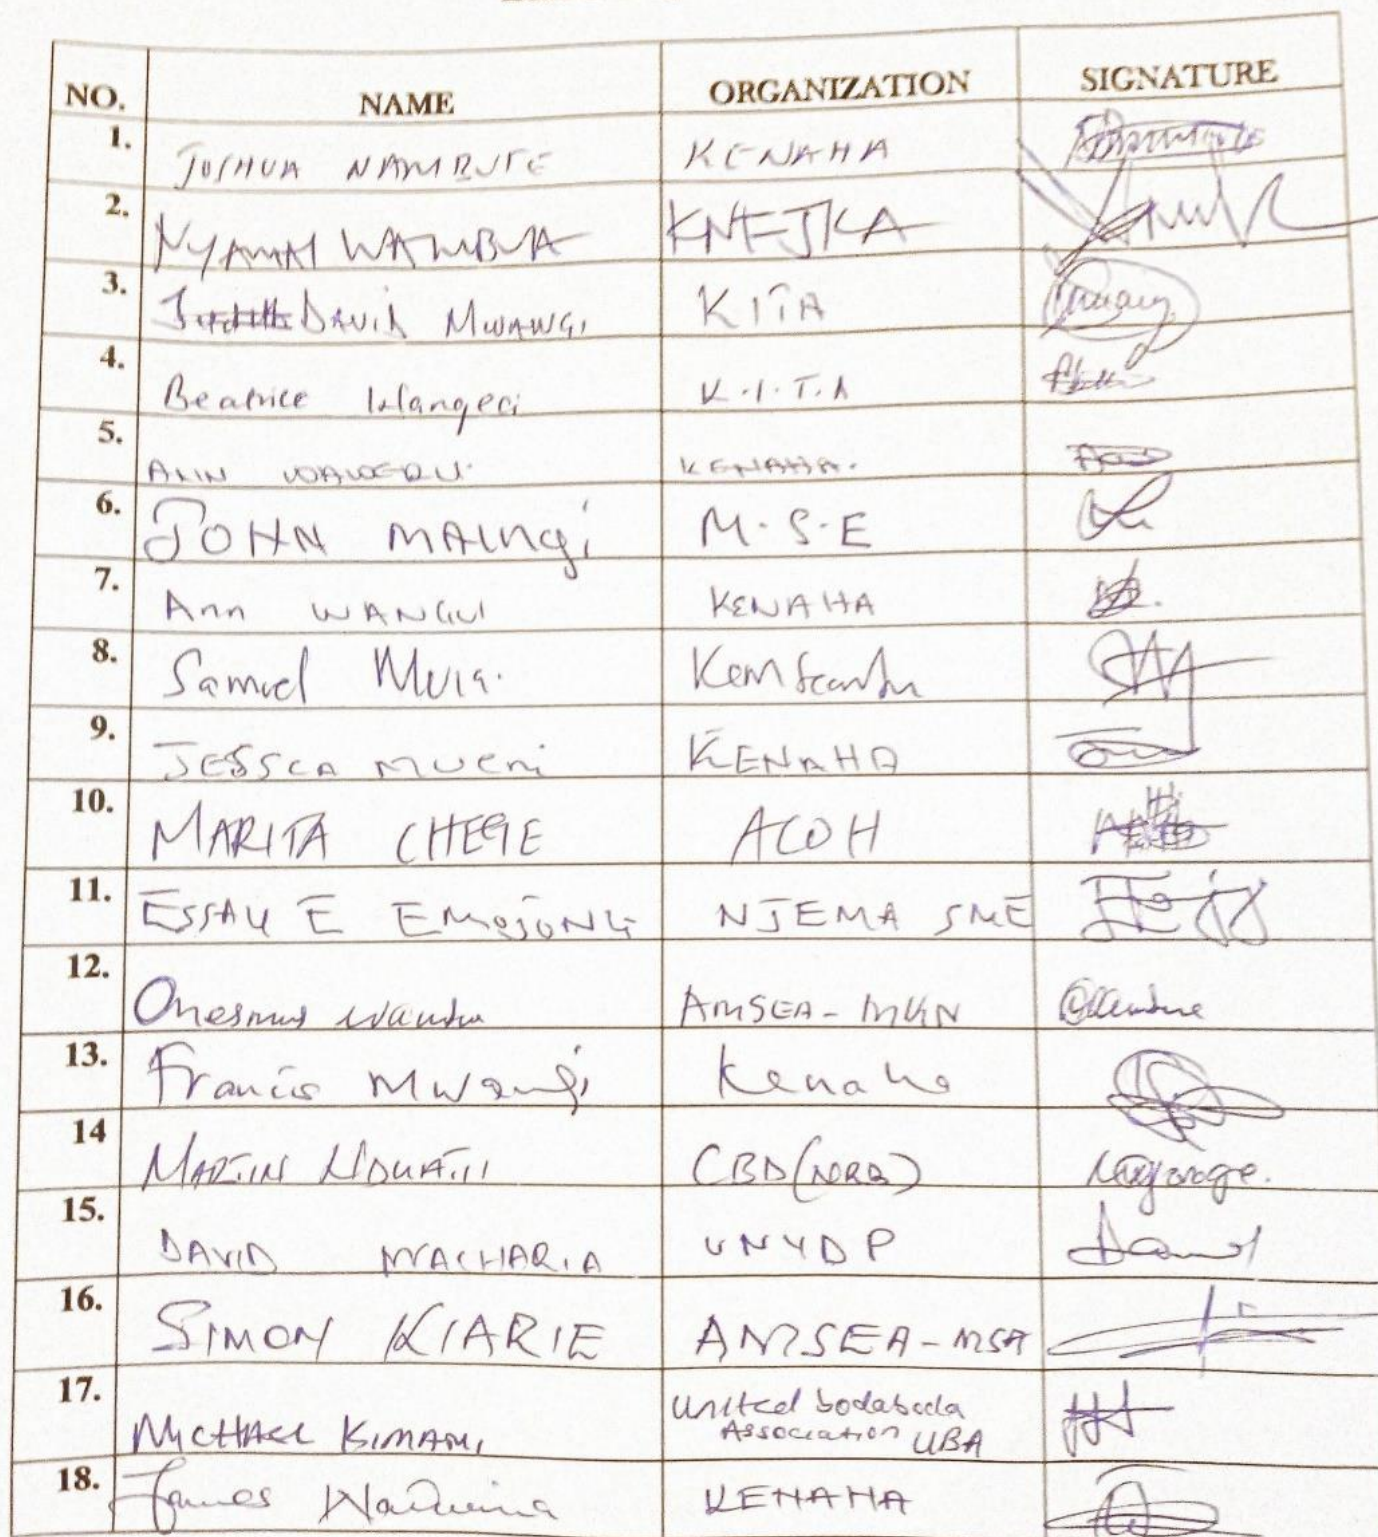 NO. NAME ORGANIZATION SIGNATURE
1. JOSHUA NAMBUTE KENAHA
2. NYAMAI WAMBUA KNFJKA
3. DAVID MWANGI KITA
4. Beatrice Wangeci K.I.T.A
5. ANN WAWERU. KENAHA.
6. JOHN MAINGI M.S.E
7. Ann WANGUI KENAHA
8. Samuel
9. JESSCA MUENI KENAHA
10. MARITA CHEGE ACOH
11. ESSAU E EMOJONG NJEMA SME
12. Onesmus AMSEA-
13. Francis Mwangi Kenaha
14 MARTIN NDUATII CBD (NRB)
15. DAVID MACHARIA UNYDP
16. SIMON KIARIE AMSEA-MSA
17. MICHAEL KIMANI United bodaboda
Association UBA
18. James KENAHA